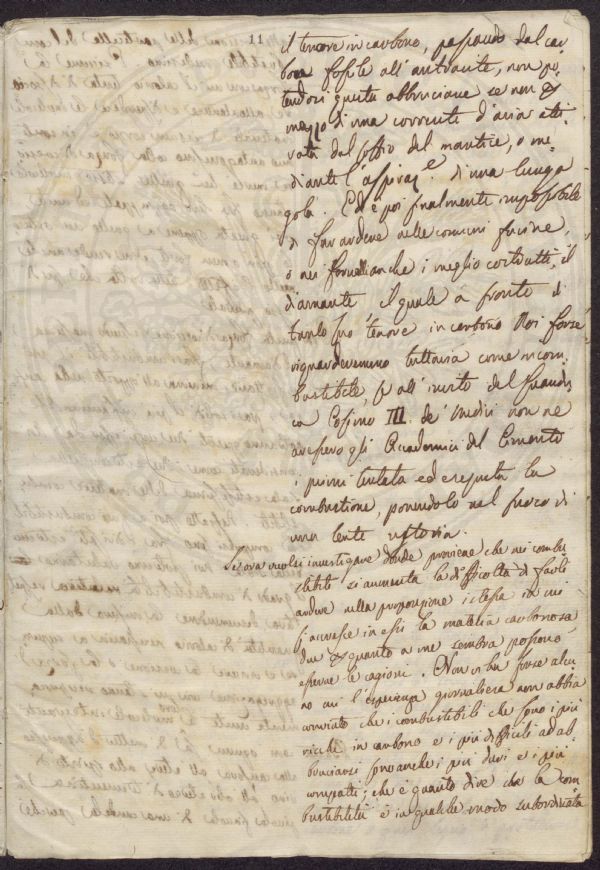 11
il tenore in carbone, passando dal car-
bone fossile all'antracite, non po-
tendosi questa abbruciare se non per
mezzo di una corrente d'aria atti-
vata dal soffio del mantice, o me-
diante l'aspiraz.e di una lunga
gola. Ed è poi finalmente impossibile
di far ardere nelle comuni fucine,
o nei fornelli anche i meglio costrutti, il
diamante il quale a fronte di
tanto suo tenore in carbone Noi forse
riguarderemmo tuttavia come incom-
bustibile, se all'invito del Grandu-
ca Cosimo III. de' Medici non ne
avessero gli Accademici del Cimento
i primi tentata ed eseguita la
combustione, ponendolo nel fuoco di
una lente ustoria.
Se ora vuolsi investigare donde proviene che nei combu-
stibili si aumenta la difficoltà di farli
ardere nella proporzione istessa in cui
si accresce in essi la materia carbonosa
due per quanto a me sembra possono
esserne le cagioni. Non vi ha forse alcu-
no cui l'esperienza giornaliera non abbia
che i combustibili che sono i più
ricchi in carbone e i più difficili ad ab-
bruciarsi sono anche i più duri e i più
compatti; che è quanto dire che la com-
bustibilità è in qualche modo subordinata